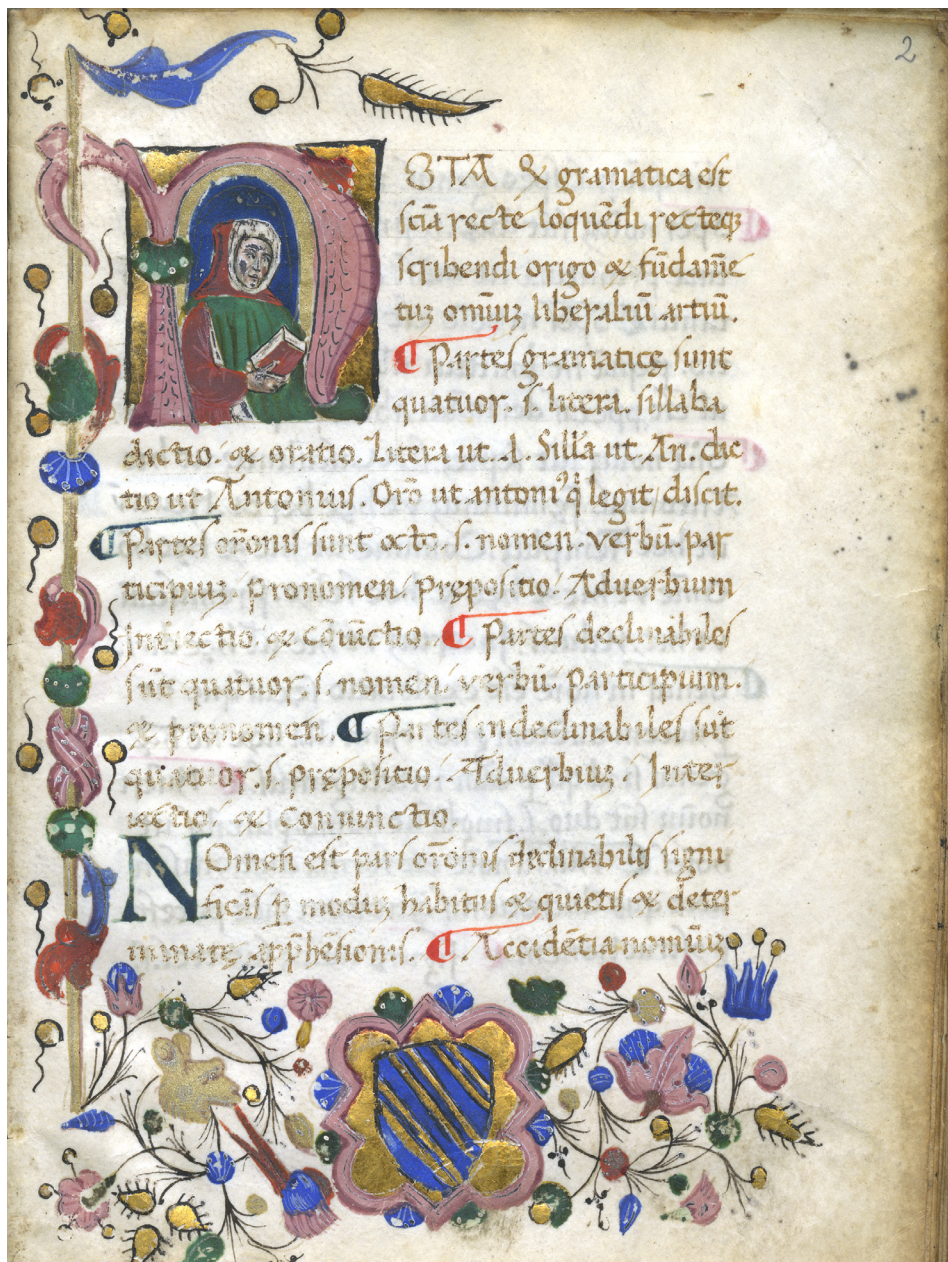 2
ETA & gramatica est
sciā recte loquēdi recteqʒ
scribendi origo & fūdam̄e
tuʒ omiūʒ liberaliū artiū.
¶ Partes gramaticę sunt
quatuor. s. litera. sillaba
dictio. & oratio. Litera ut. A. Silla ut An. dic
tio ut Antonius. Orō ut antoniꝰ q̄ legit discit.
¶ Partes orōnis sunt octo. s. nomen. verbū. par
ticipiuʒ. pronomen. prępositio. Aduerbium
interiectio. & cōiūctio. ¶ Partes declinabiles
sūt quatuor. s. nomen. verbū. participium.
& pronomen. ¶ Partes indeclinabiles sūt
quatuor. s. prępositio. Aduerbiuʒ. Inter
iectio. & Coniunctio.
NOmen est pars orōnis declinabilis signi
ficās ꝑ moduʒ habitus & quietis & deter
minatę app̄hēsionis. ¶ Accidētia nomiūʒ